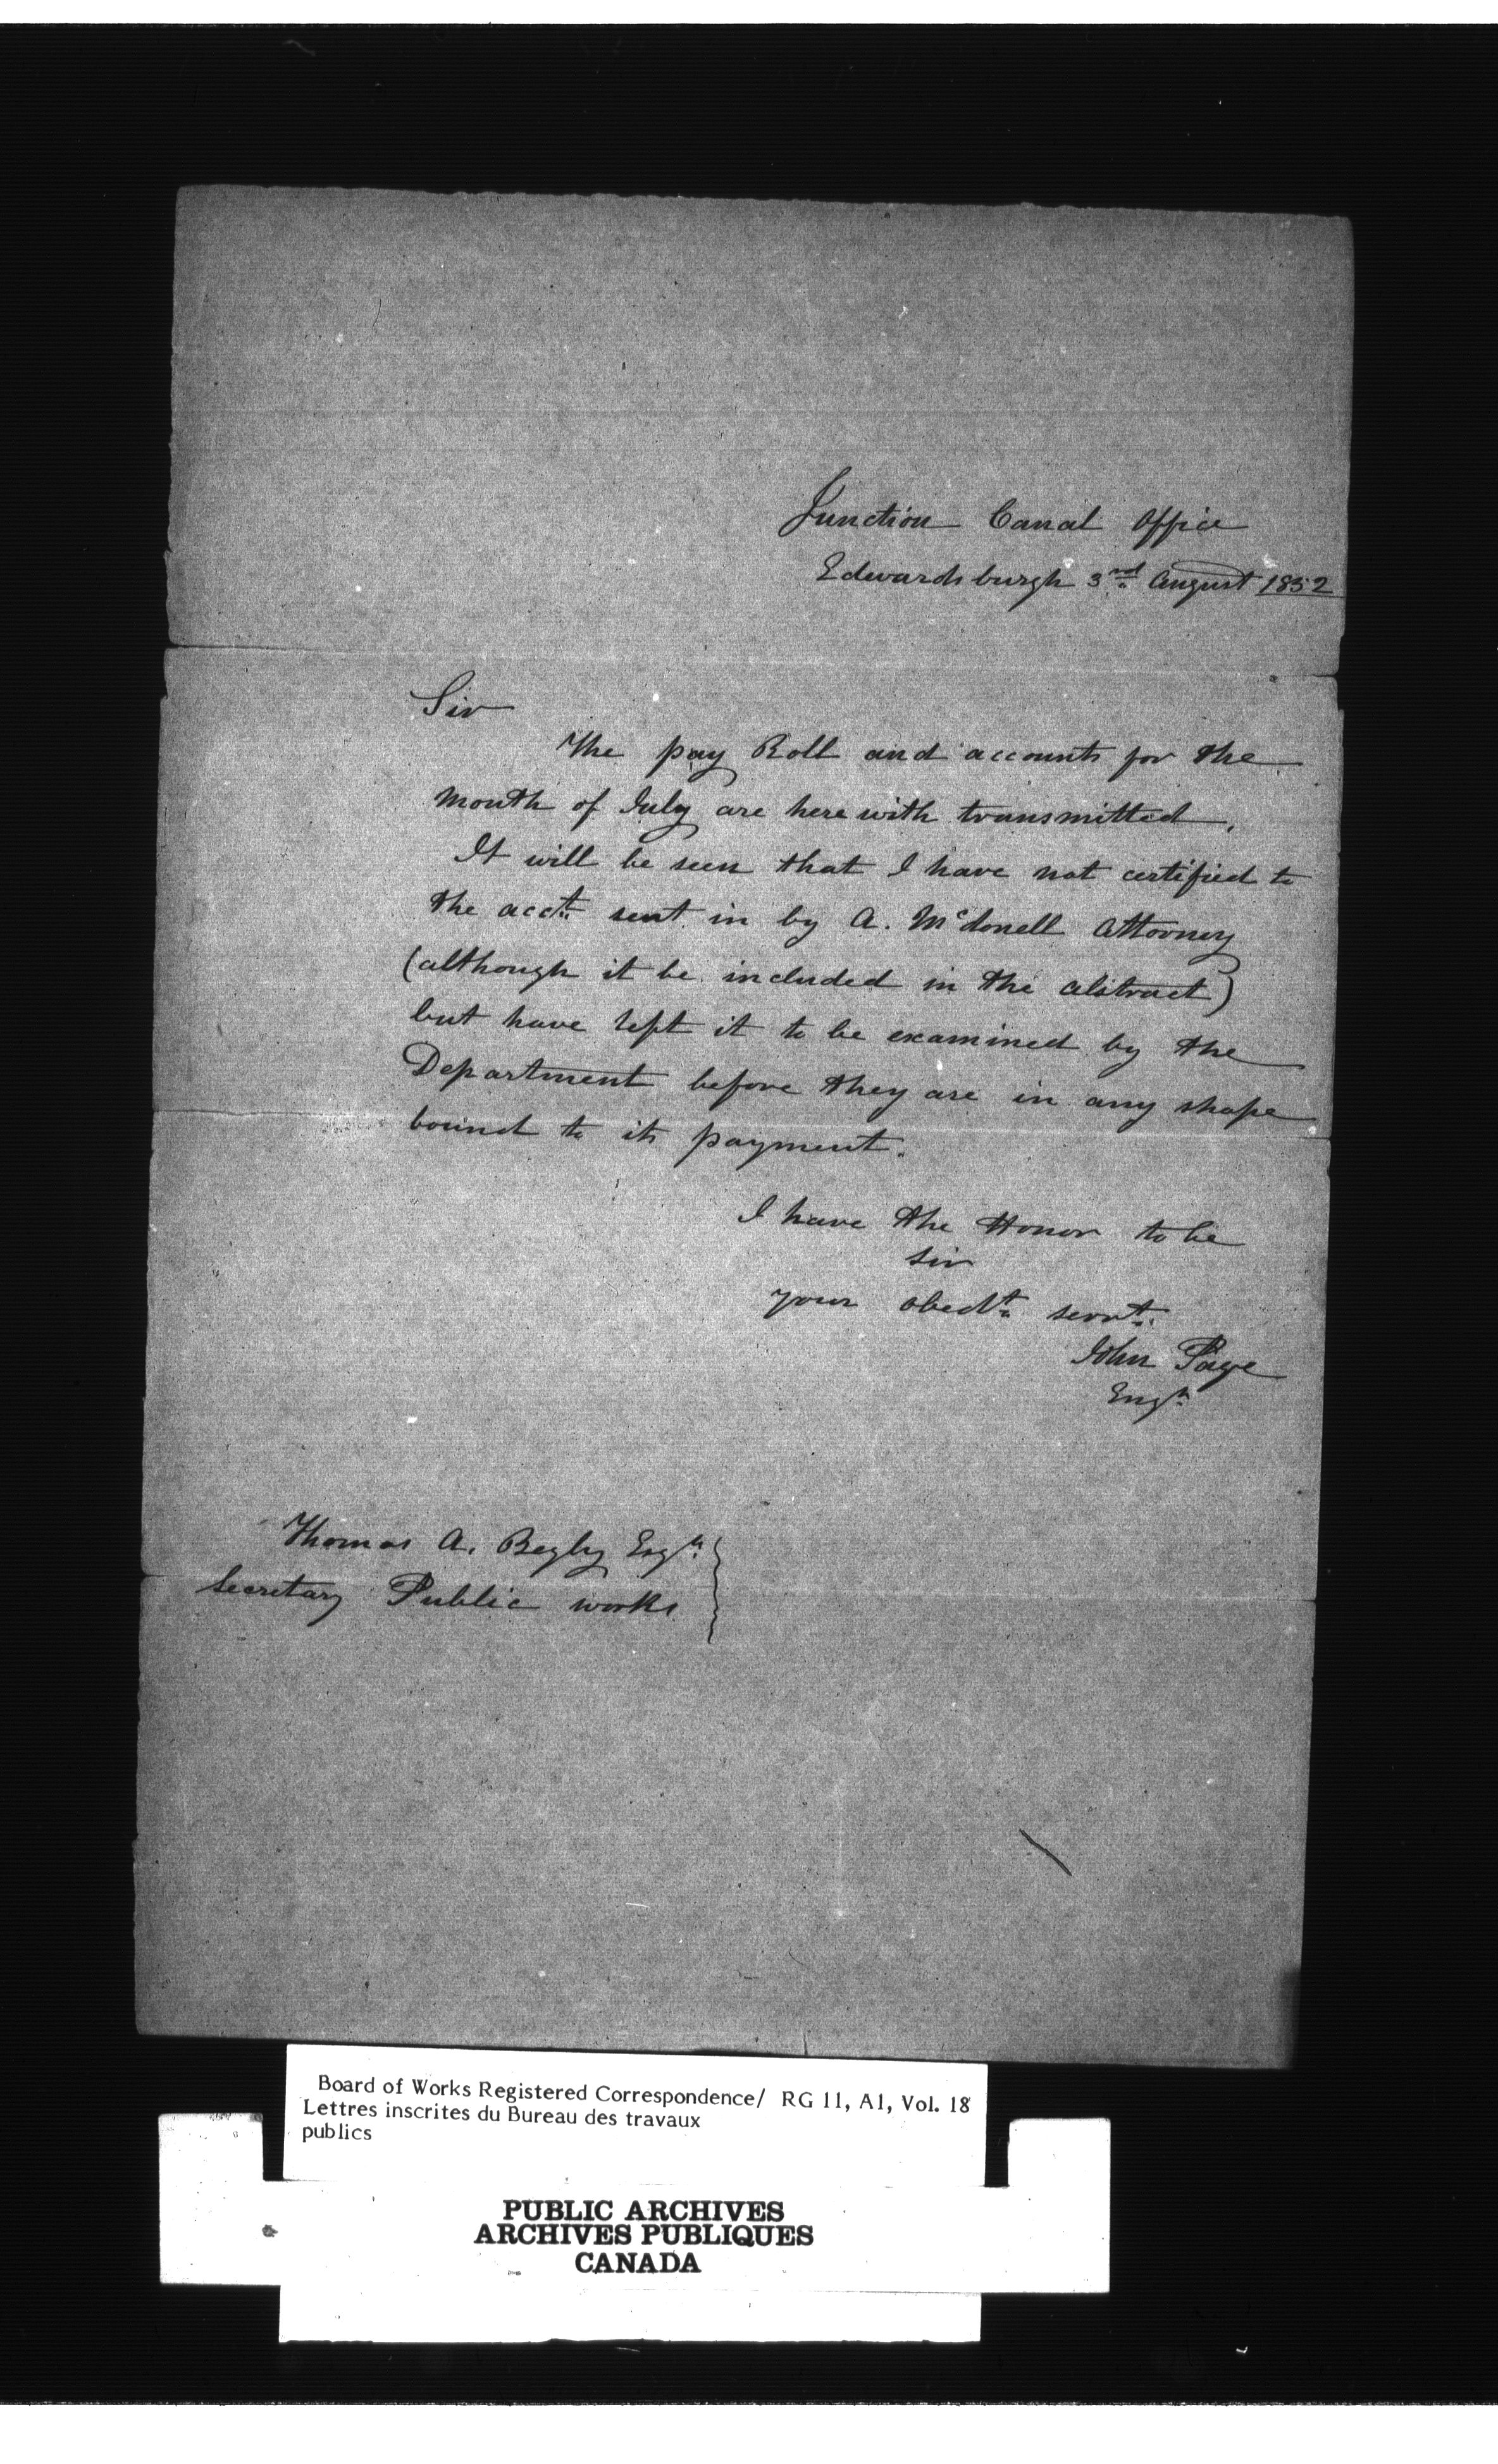 Junction Canal Office
Edwardsburgh 3rd August 1852
Sir
The pay Roll and accounts for the
month of July are herewith transmitted.
It will be seen that I have not certified to
the acct. sent in by A. McDonell Attorney
(although it be included in the abstract)
but have left it to be examined by the
Department before they are in any shape
bound to its payment.
I have the Honor to be
Sir
your obedt. servt.
John Page
Engr.
Thomas A. Begly Esqr.
Secretary Public works
Board of Works Registered Correspondence/ RG 11, A1, Vol. 18
Lettres inscrites du Bureau des travaux
publics
PUBLIC ARCHIVES
ARCHIVES PUBLIQUES
CANADA